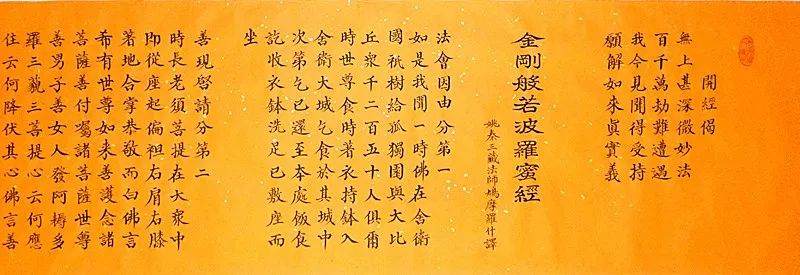 開經偈
無上甚深微妙法
百千萬劫難遭遇
我今見聞得受持
願解如來真實義
金剛般若波羅蜜經
姚秦三藏法師鳩摩羅什譯
法會因由分第一
如是我聞一時佛在舍衛
國祇樹給孤獨園與大比
丘眾千二百五十人俱爾
時世尊食時著衣持鉢入
舍衛大城乞食於其城中
次第乞已還至本處飯食
訖收衣鉢洗足已敷座而
坐
善現啓請分第二
時長老須菩提在大眾中
即從座起偏袒右肩右膝
著地合掌恭敬而白佛言
希有世尊如來善護念諸
菩薩善付囑諸菩薩世尊
善男子善女人發阿耨多
羅三藐三菩提心云何應
住云何降伏其心佛言善